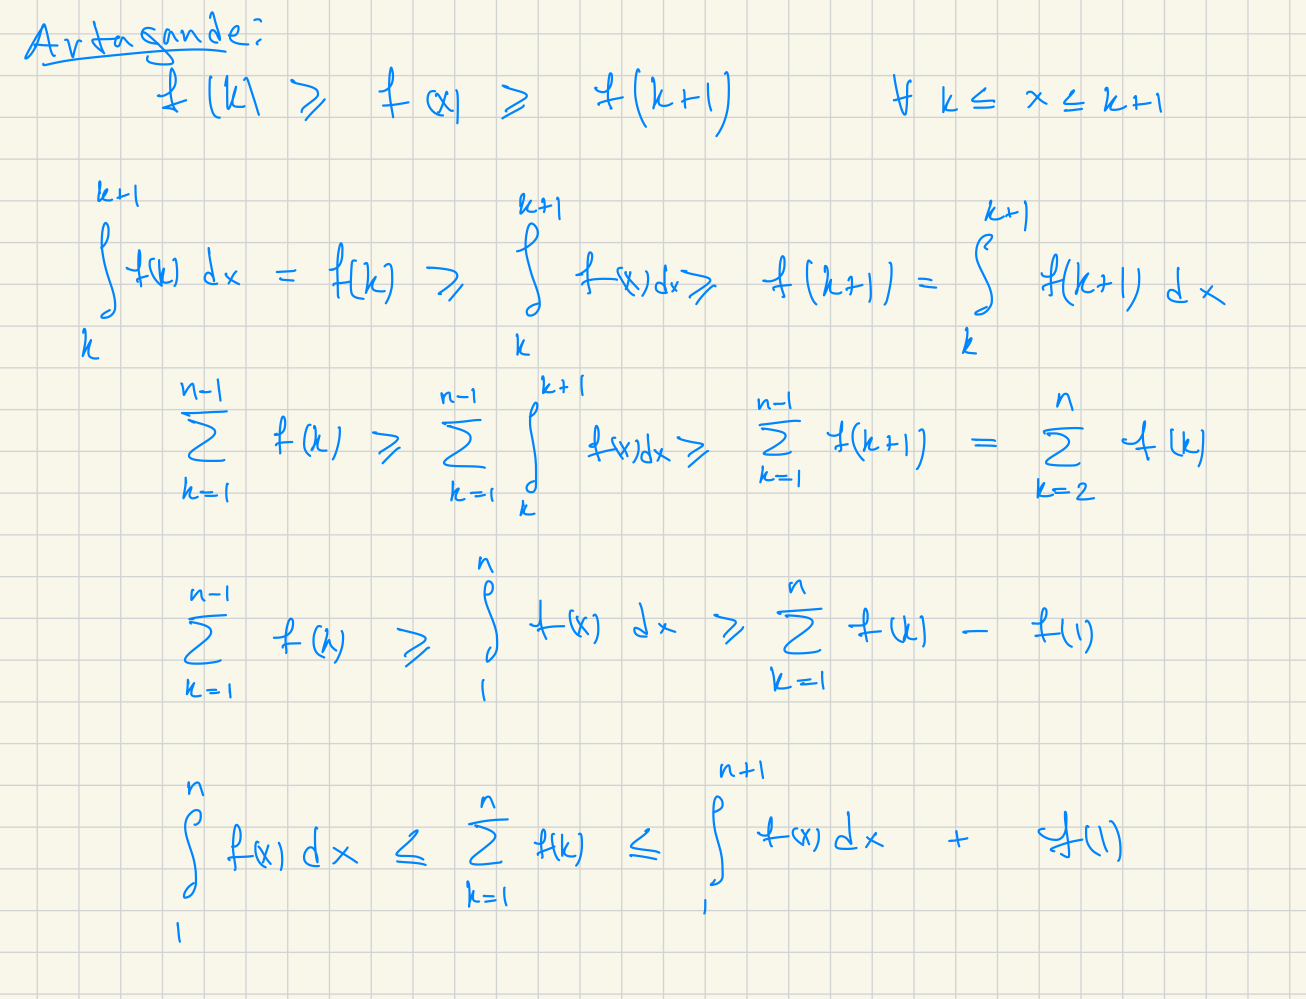 Antagande:
f(k) ≥ f(x) ≥ f(k+1) ∀ k ≤ x ≤ k+1
∫_k^{k+1} f(k) dx = f(k) ≥ ∫_k^{k+1} f(x) dx ≥ f(k+1) = ∫_k^{k+1} f(k+1) dx
∑_{k=1}^{n-1} f(k) ≥ ∑_{k=1}^{n-1} ∫_k^{k+1} f(x) dx ≥ ∑_{k=1}^{n-1} f(k+1) = ∑_{k=2}^{n} f(k)
∑_{k=1}^{n-1} f(k) ≥ ∫_1^n f(x) dx ≥ ∑_{k=1}^{n} f(k) - f(1)
∫_1^n f(x) dx ≤ ∑_{k=1}^{n} f(k) ≤ ∫_1^{n+1} f(x) dx + f(1)